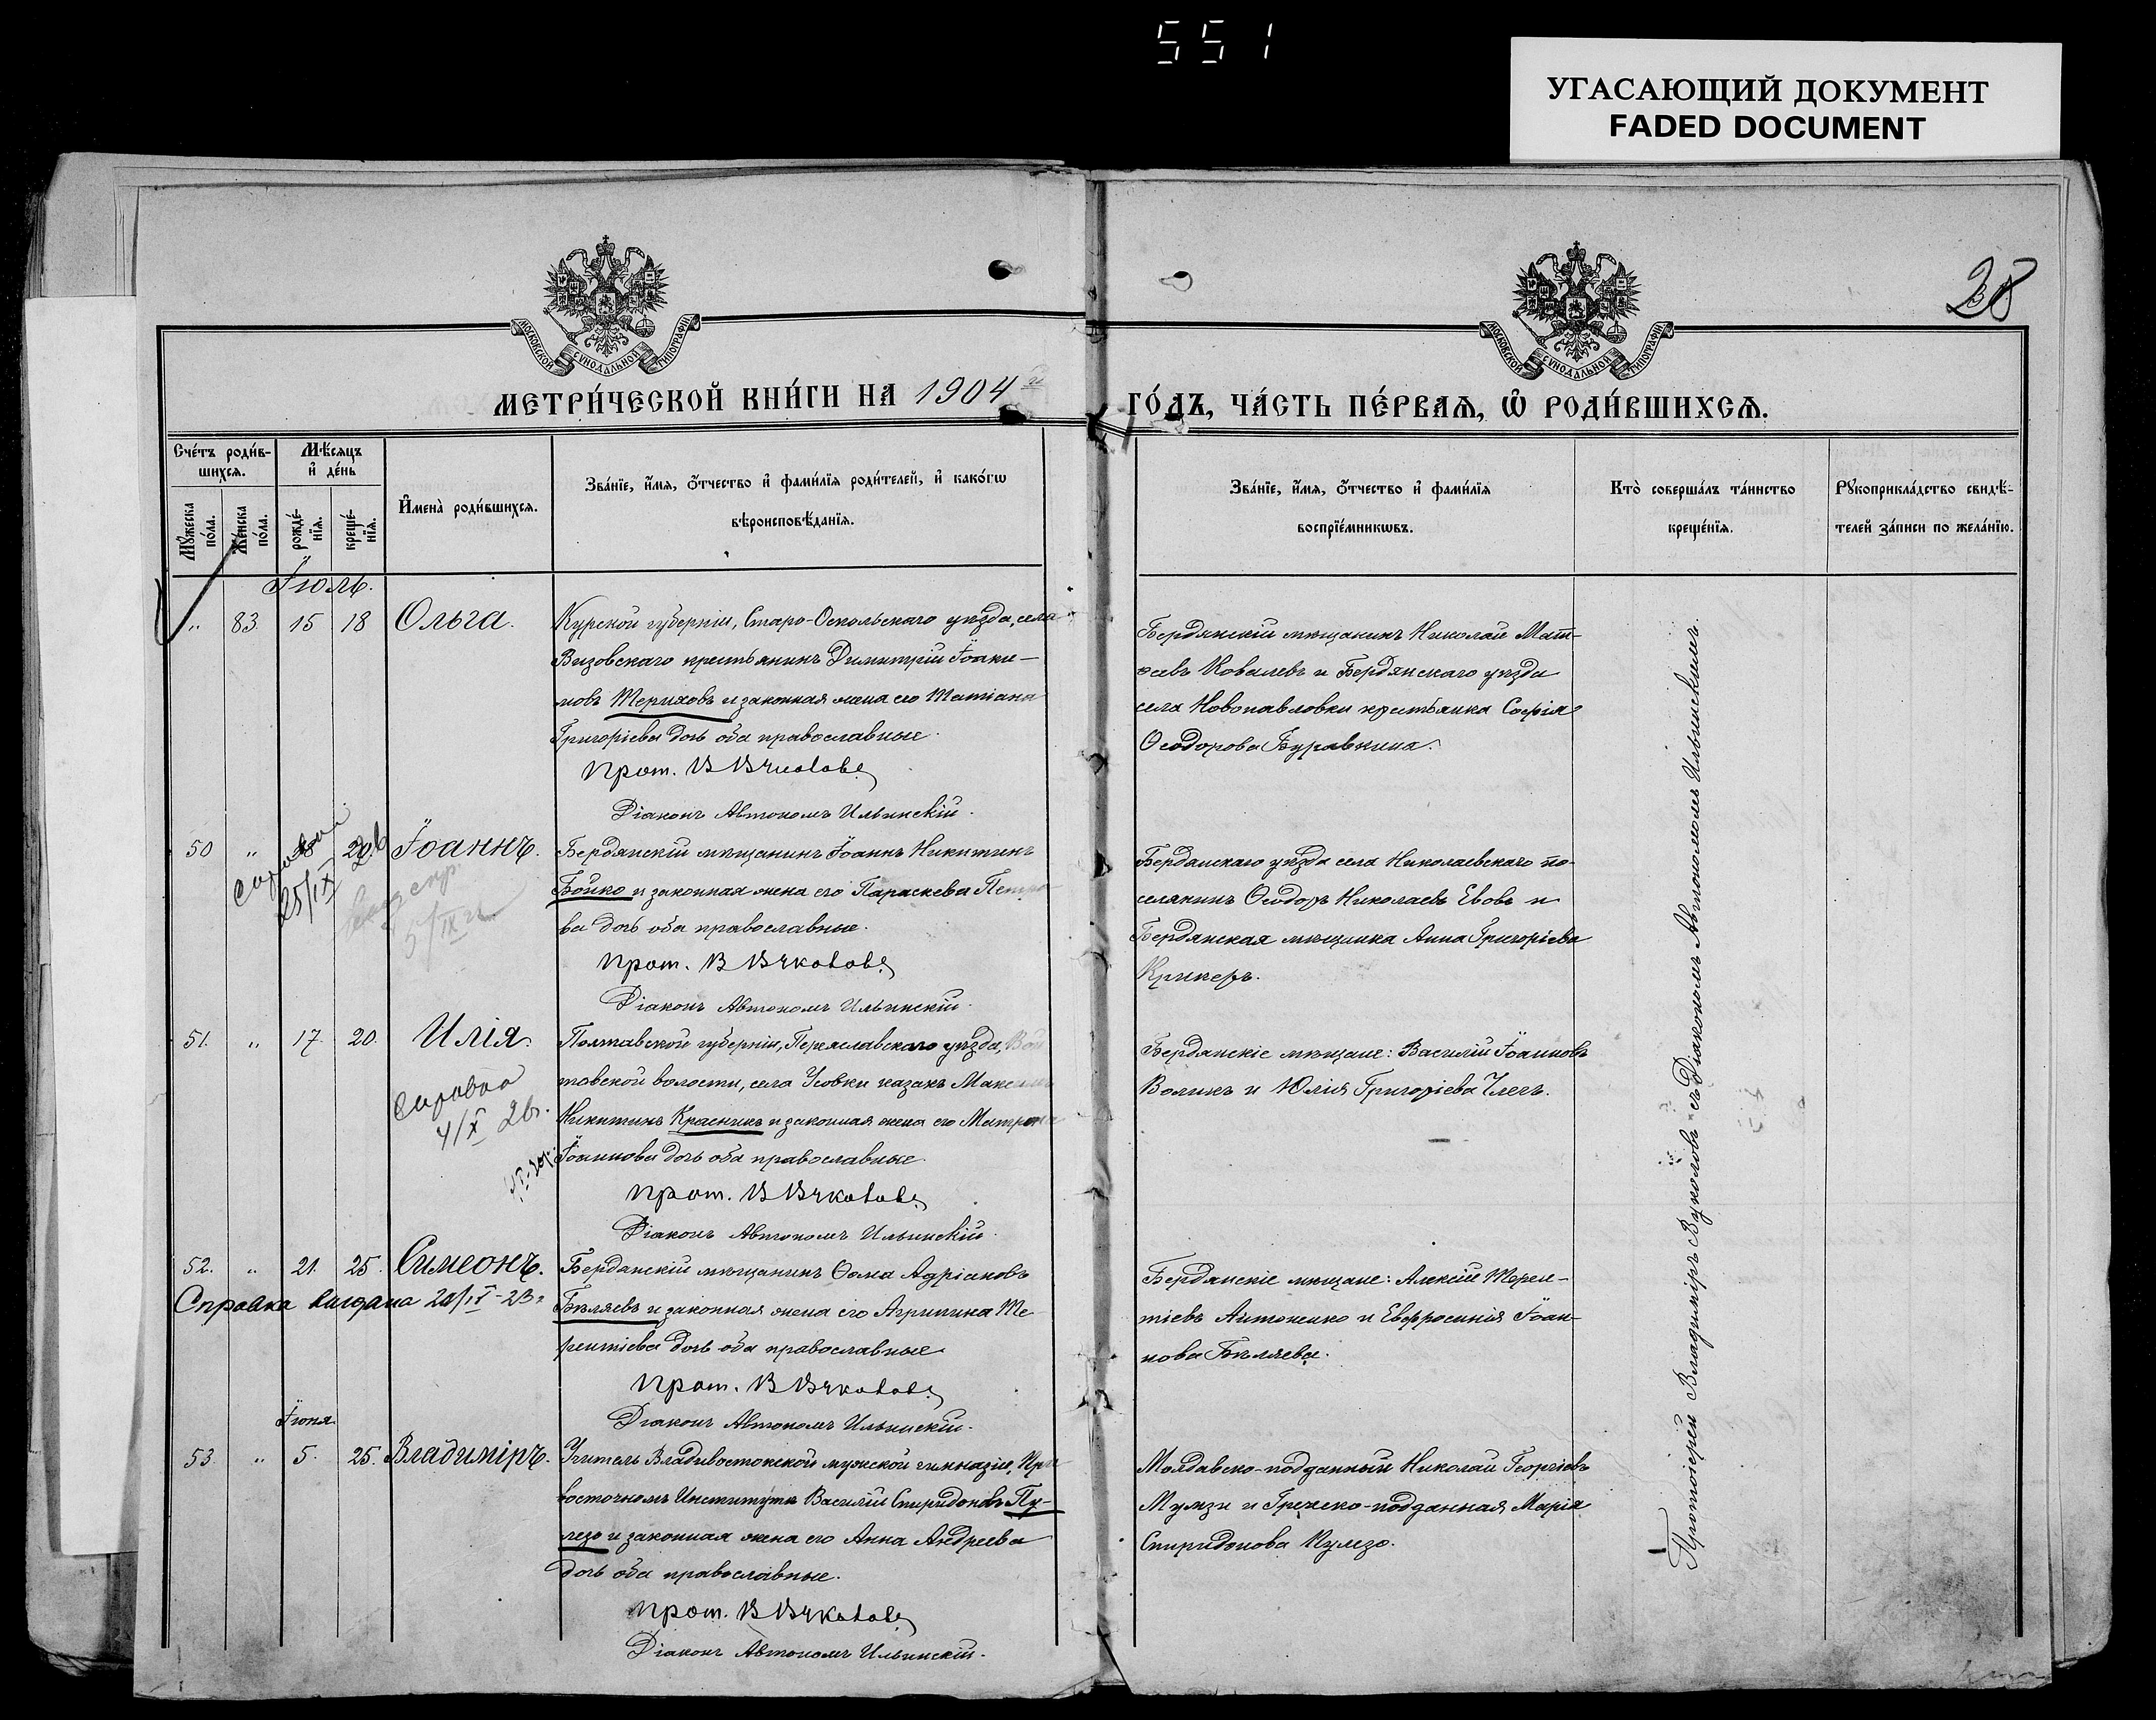 551
УГАСАЮЩИЙ ДОКУМЕНТ
FADED DOCUMENT
28
МОСКОВСКОЙ СѴНОДАЛЬНОЙ ТИПОГРАФІИ
МОСКОВСКОЙ СѴНОДАЛЬНОЙ ТИПОГРАФІИ
МЕТРИ́ЧЕСКОЙ КНИ́ГИ НА 1904 й
ГО́ДЪ, ЧА́СТЬ ПЕ́РВАЯ, Ѡ РОДИ́ВШИХСЯ.
Сче́тъ роди́в-
шихся.
Мѣ́сяцъ
и де́нь
Мꙋ́жеска по́ла.
Же́нска по́ла.
рожде́-
нїя.
креще́-
нїя.
И҆мена̀ роди́вшихся.
Зва́нїе, и҆́мя, ѻ҆́тчество и҆ фами́лїя роди́телей, и҆ како́гѡ
вѣроисповѣ́данїя.
Зва́нїе, и҆́мя, ѻ҆́тчество и҆ фами́лїя
воспрїе́мникѡвъ.
Кто̀ соверша́лъ та́инство
креще́нїя.
Рꙋкоприкла́дство свидѣ́-
телей за́писи по жела́нїю.
Іюль.
„ 83 15 18 Ольга.
Курской губерніи, Старо-Оскольскаго уѣзда, села
Визовскаго крестьянинъ Димитрій Іоаки-
мовъ Териховъ и законная жена его Татіана
Григоріева дочь оба православные.
Прот. В Вуколовъ
Діаконъ Автономъ Ильинскій.
Бердянскій мѣщанинъ Николай Мат-
ѳеевъ Ковалевъ и Бердянскаго уѣзда
села Новопавловки крестьянка Софія
Ѳеодорова Буравкина.
50 „ 18 20 Іоаннъ.
25/IX
5/IX
Бердянскій мѣщанинъ Іоаннъ Никитинъ
Бойко и законная жена его Параскева Петро-
ва дочь оба православные.
Прот. В Вуколовъ
Діаконъ Автономъ Ильинскій.
Бердянскаго уѣзда села Николаевскаго по-
селянинъ Ѳеодоръ Николаевъ Евовъ и
Бердянская мѣщанка Анна Григоріева
Крикеръ.
51. „ 17. 20. Илія.
Справка
4/X 26.
Полтавской губерніи, Переяславскаго уѣзда, Вой-
товской волости, села Усовки казакъ Максимъ
Никитинъ Красникъ и законная жена его Матрона
Іоаннова дочь оба православные.
Прот. В Вуколовъ
Діаконъ Автономъ Ильинскій.
Бердянскіе мѣщане: Василій Іоанновъ
Воликъ и Юлія Григоріева Члекъ.
52. „ 21. 25. Симеонъ.
Справка выдана 20/IX-23г
Бердянскій мѣщанинъ Ѳома Адріановъ
Бѣляевъ и законная жена его Агрипина Те-
рентіева дочь оба православные.
Прот. В Вуколовъ
Діаконъ Автономъ Ильинскій.
Бердянскіе мѣщане: Алексій Терен-
тіевъ Антоненко и Евфросинія Іоан-
нова Бѣляева.
Іюня.
53. „ 5. 25. Владиміръ.
Учитель Владивостокской мужской гимназіи, при
восточномъ Институтѣ Василій Спиридоновъ Пу-
лезо и законная жена его Анна Андреева
дочь оба православные.
Прот. В Вуколовъ
Діаконъ Автономъ Ильинскій.
Молдавско-подданный Николай Георгіевъ
Мумзи и Греческо-подданная Марія
Спиридонова Кулезо.
Протоіерей Владиміръ Вуколовъ съ Діакономъ Автономомъ Ильинскимъ.